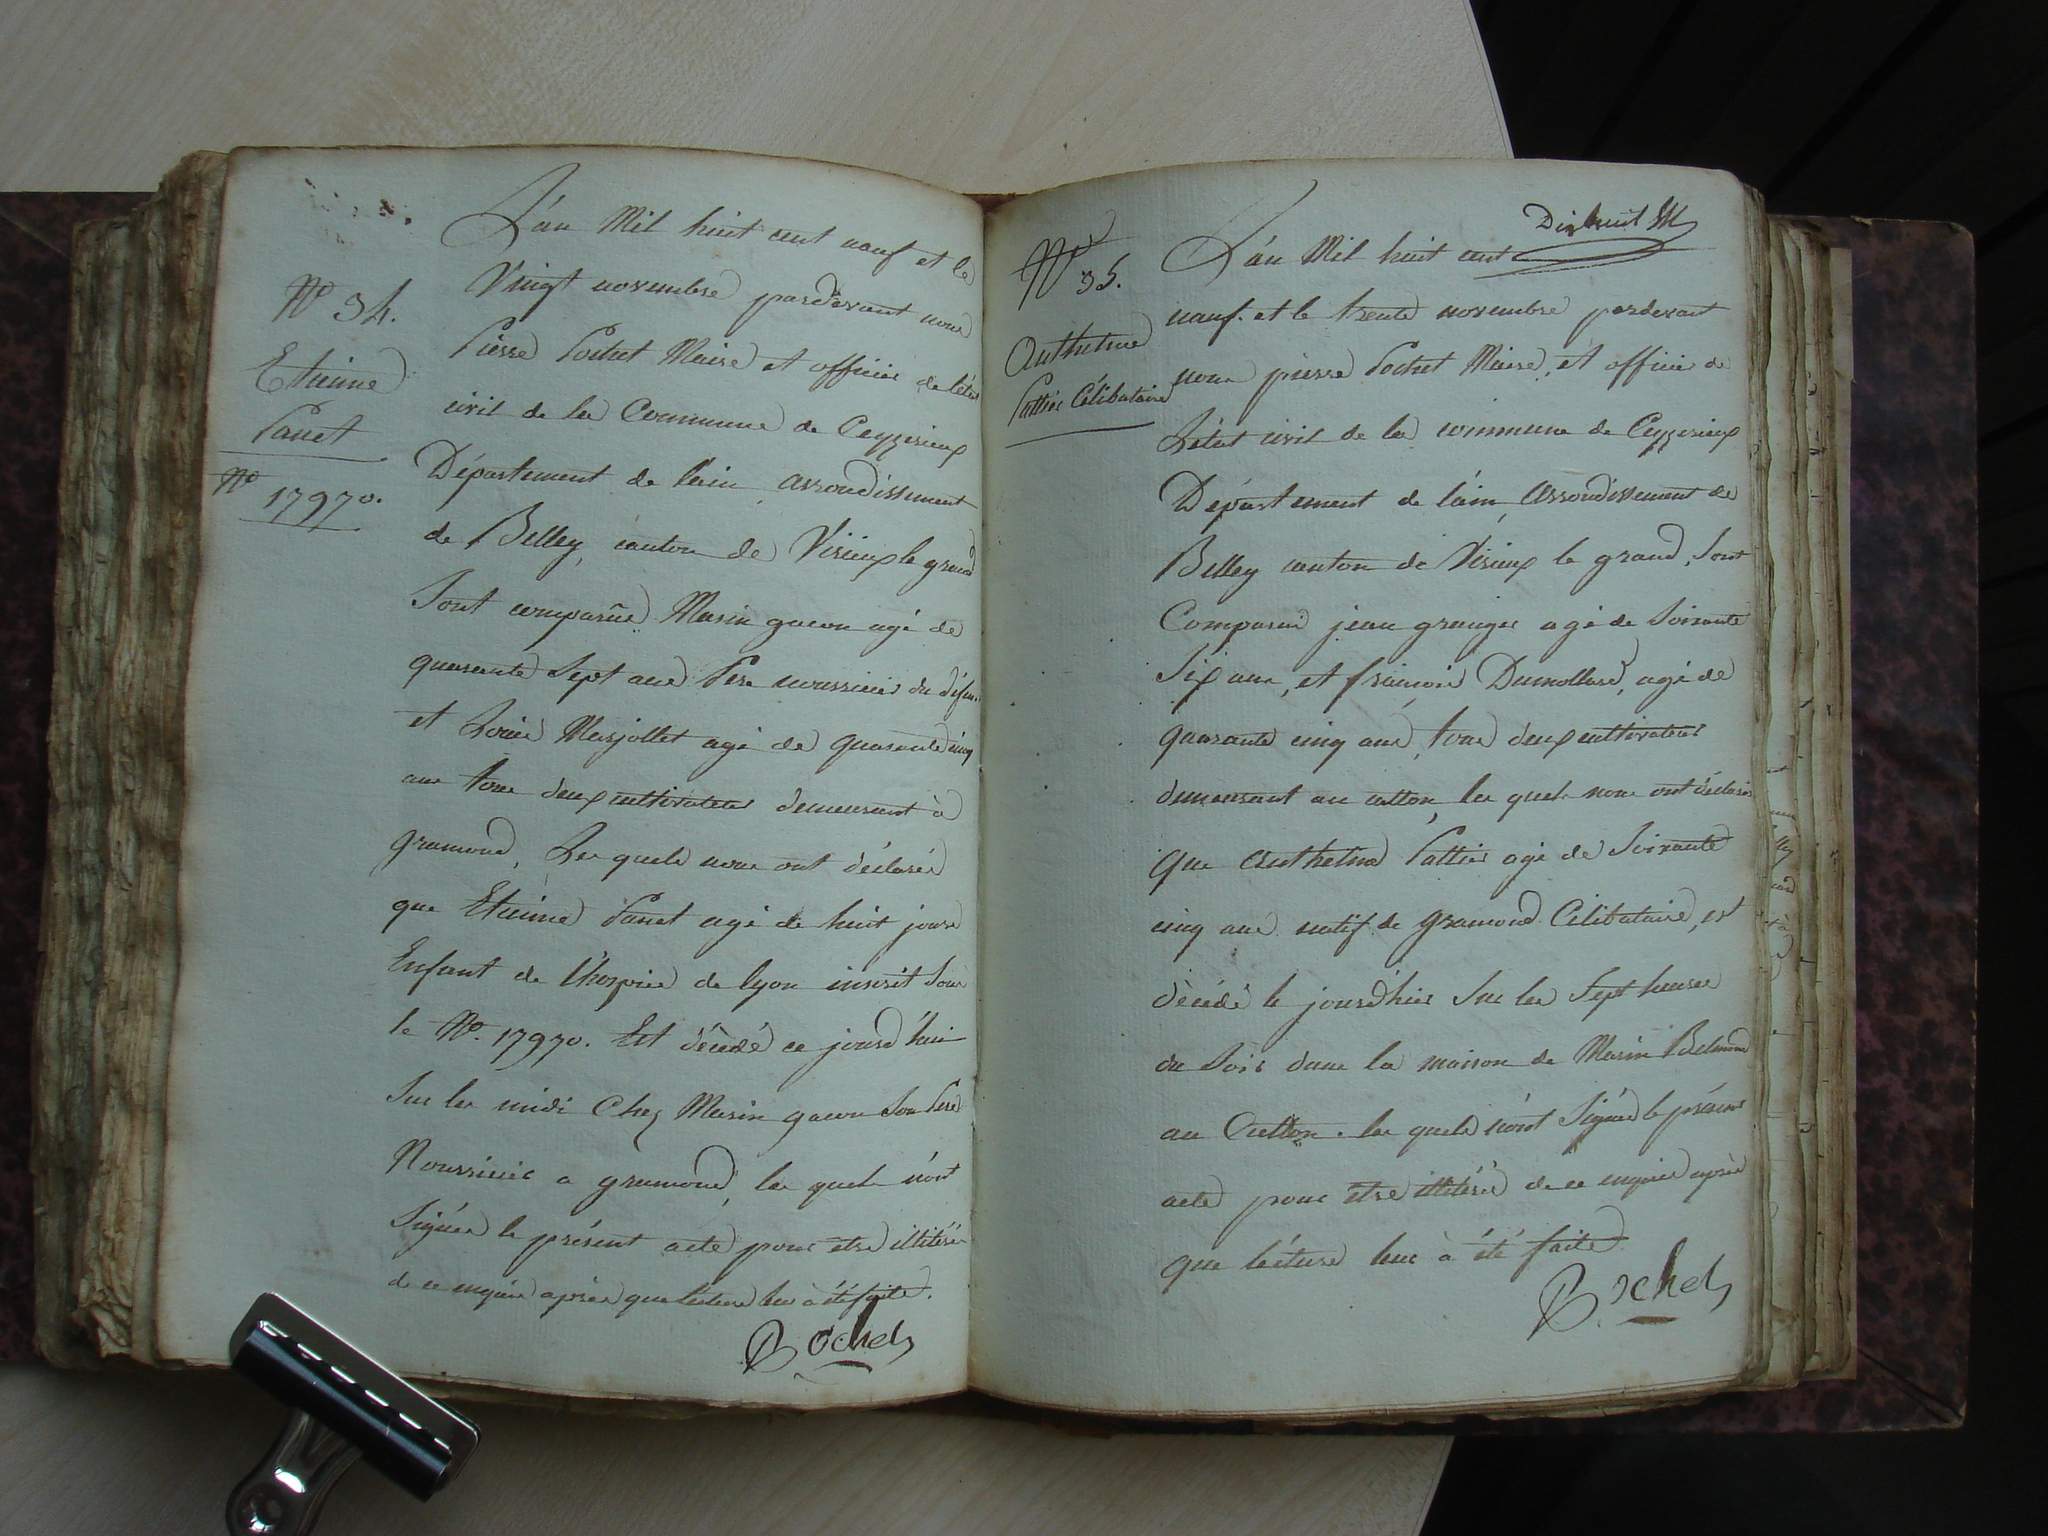 L'an Mil huit cent neuf et le
Vingt novembre pardevant nous
Pierre Pochet Maire et officier de l'état
civil de la Commune de Ceyzerieux
Département de l'ain, arrondissement
de Belley, canton de Virieux le grand
Sont comparûs Marin gacon agé de
quarante Sept ans Pere nourricier du défunt
et Louis Marjollet agé de quarante cinq
ans tous deux cultivateurs demeurant à
gramond, Les quels nous ont déclarés
que Etienne Panet agé de huit jours
Enfant de l'hospice de lyon inscrit Sous
le No. 17970. Est décédé ce jourd'hui
Sur les midi Chez Marin gacon Son Pere
Nourricier a gramond, les quels n'ont
Signés le présent acte pour etre illitérés
de ce enquis après que lecture leur à été faite.
Pochet
No 34.
Etienne
Panet
No 17970.
Dix huit
L'an Mil huit cent
neuf. et le trente novembre pardevant
nous pierre Pochet Maire, et officier de
L'état civil de la commune de Ceyzerieux
Département de l'ain, Arrondissement de
Belley canton de Virieux le grand, Sont
Comparus jean granger agé de Soixante
Six ans, et françois Dumollard, agé de
quarante cinq ans, tous deux cultivateurs
demeurant au culton, les quels nous ont déclarés
Que Anthelme Pattier agé de Soixante
cinq ans natif de gramond Célibataire, est
décédé le jourd'hui Sur les Sept heures
du Soir dans la maison de Marin Belmond
au Culton. les quels n'ont Signés le présent
acte pour etre illitérés de ce enquis après
que lécture leur à été faite
Pochet
No 35.
Anthelme
Pattier Célibataire